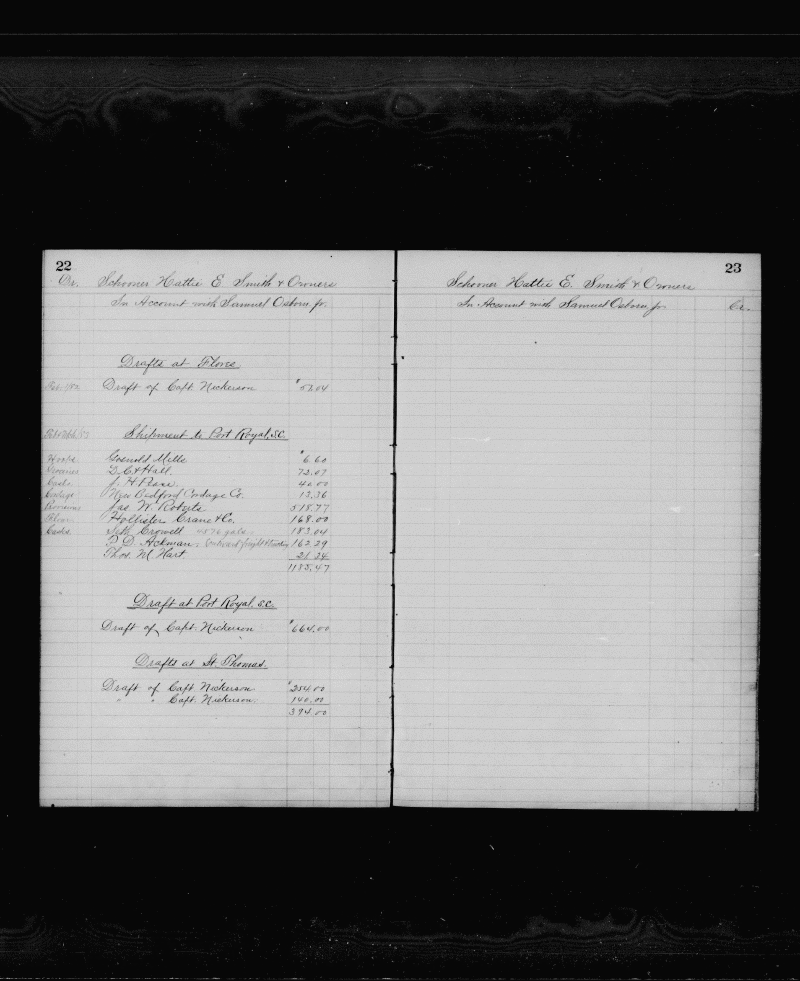 22
Dr. Schooner Hattie E. Smith & Owners
In Account with Samuel Osborn Jr.
Drafts at Flores
Draft of Capt. Nickerson $57.04
Shipment to Port Royal, S.C.
Hooks Gosnold Mills $6.60
Groceries D. C. & Hall. 72.07
Casks J. H. 40.00
Cordage New Bedford Cordage Co. 13.36
Provisions Jas W. Roberts 518.77
Flour Hollister Crane & Co. 168.00
Casks Seth Crowell 4576 gals. 183.04
D. D. Ackman. Outward freight & 162.29
Thos. M. Hart. 21.34
1185.47
Draft at Port Royal. S.C.
Draft of Capt. Nickerson $664.00
Drafts at St. Thomas.
Draft of Capt. Nickerson. $254.00
" " Capt. Nickerson. 140.00
394.00
23
Schooner Hattie E. Smith & Owners
In Account with Samuel Osborn Jr. Cr.